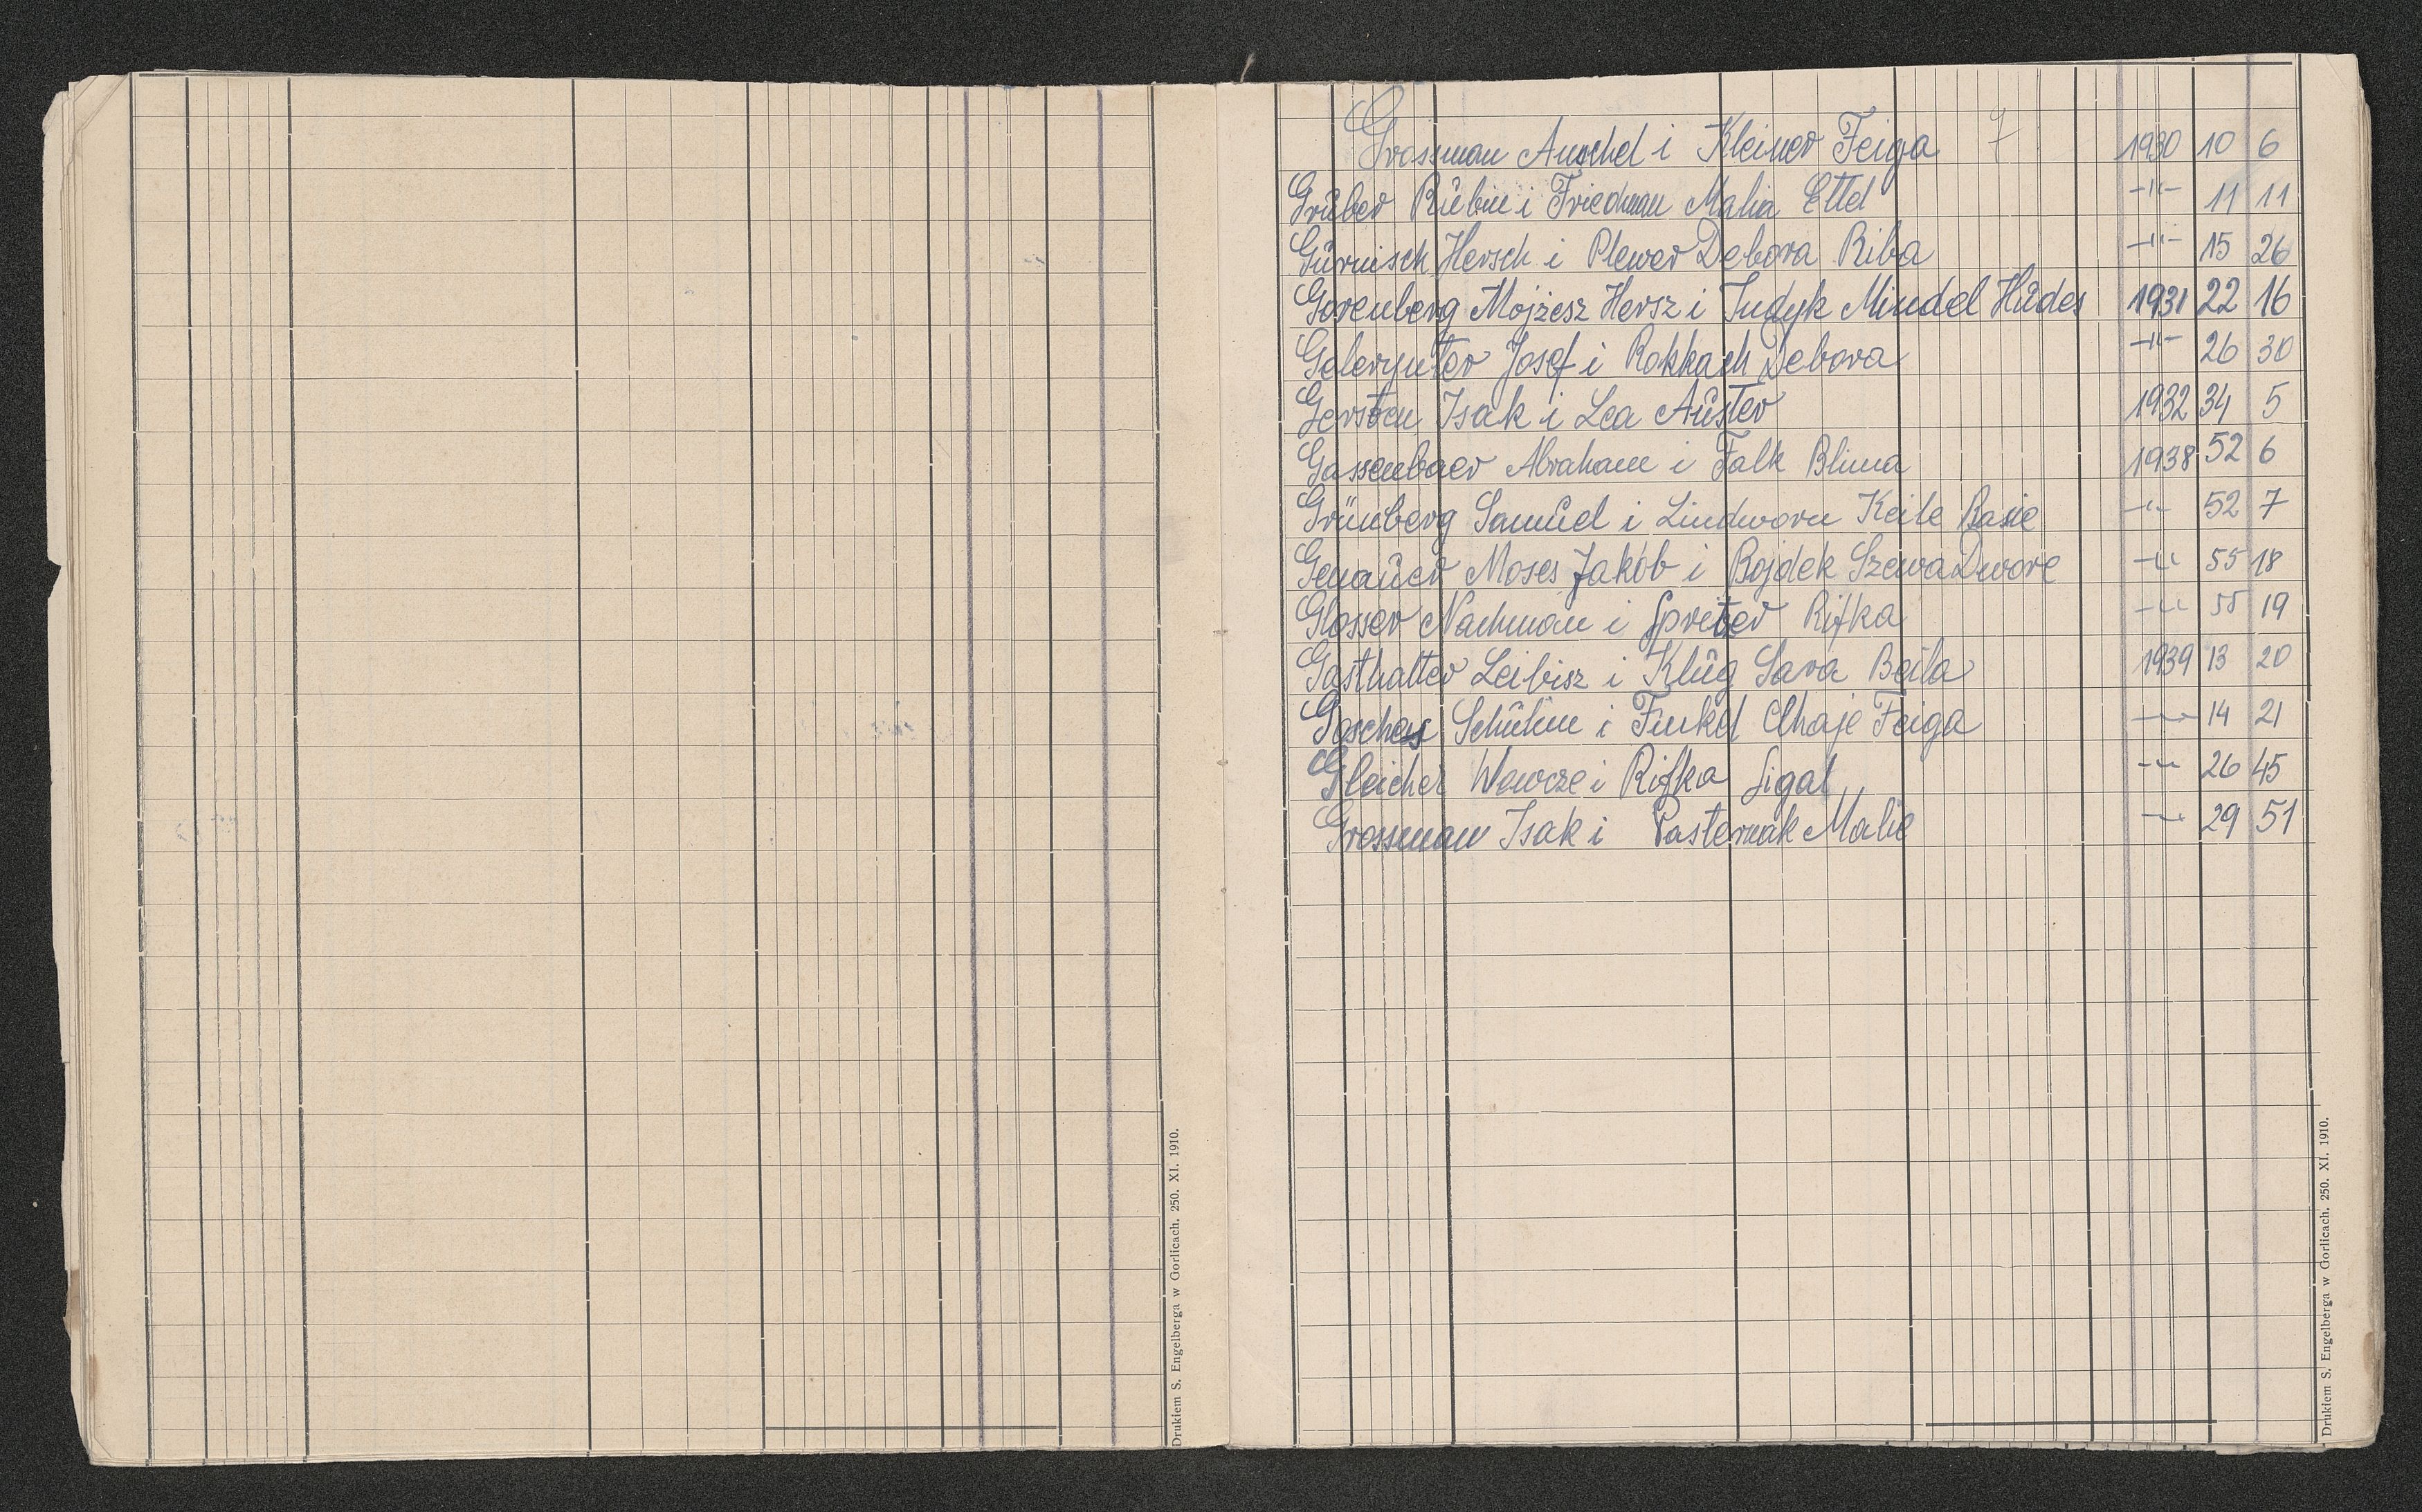 G
Grossman Anschel i Kleiner Feiga 7 1930 10 6
Grüber Rübin i Friedman Malia Ettel -"- 11 11
Gürnisch Hersch i Plewer Debora Riba -"- 15 26
Gorenberg Mojżesz Hersz i Indyk Mindel Hudes 1931 22 16
Gelernter Josef i Rokkach Debora -"- 26 30
Gersten Isak i Lea Auster 1932 34 5
Gassenbaer Abraham i Falk Blima 1938 52 6
Grünberg Samuel i Lindworn Keile Rasie -"- 52 7
Genauer Moses Jakob i Bojdek Szewa Dwore -"- 55 18
Glosser Nachman i Spreter Rifka -"- 55 19
Gasthalter Leibisz i Klug Sara Beila 1939 13 20
Goschen Schulim i Finkel Chaje Feiga -"- 14 21
Gleicher Wewcze i Rifka Sigal -"- 26 45
Grossman Isak i Pasternak Malie -"- 29 51
Drukiem S. Engelberga w Gorlicach. 250. XI. 1910.
Drukiem S. Engelberga w Gorlicach. 250. XI. 1910.